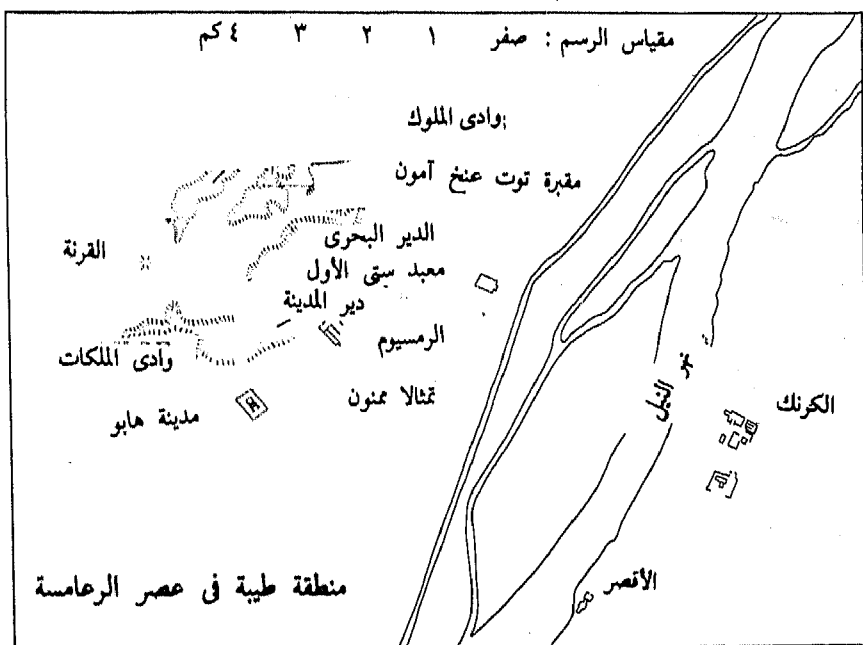 مقياس الرسم : صفر ١ ٢ ٣ ٤ كم
وادى الملوك
مقبرة توت عنخ آمون
الدير البحرى
القرنة
معبد ستى الأول
دير المدينة
الرمسيوم
وادى الملكات
تمثالا ممنون
مدينة هابو
نهر النيل
الكرنك
الأقصر
منطقة طيبة فى عصر الرعامسة